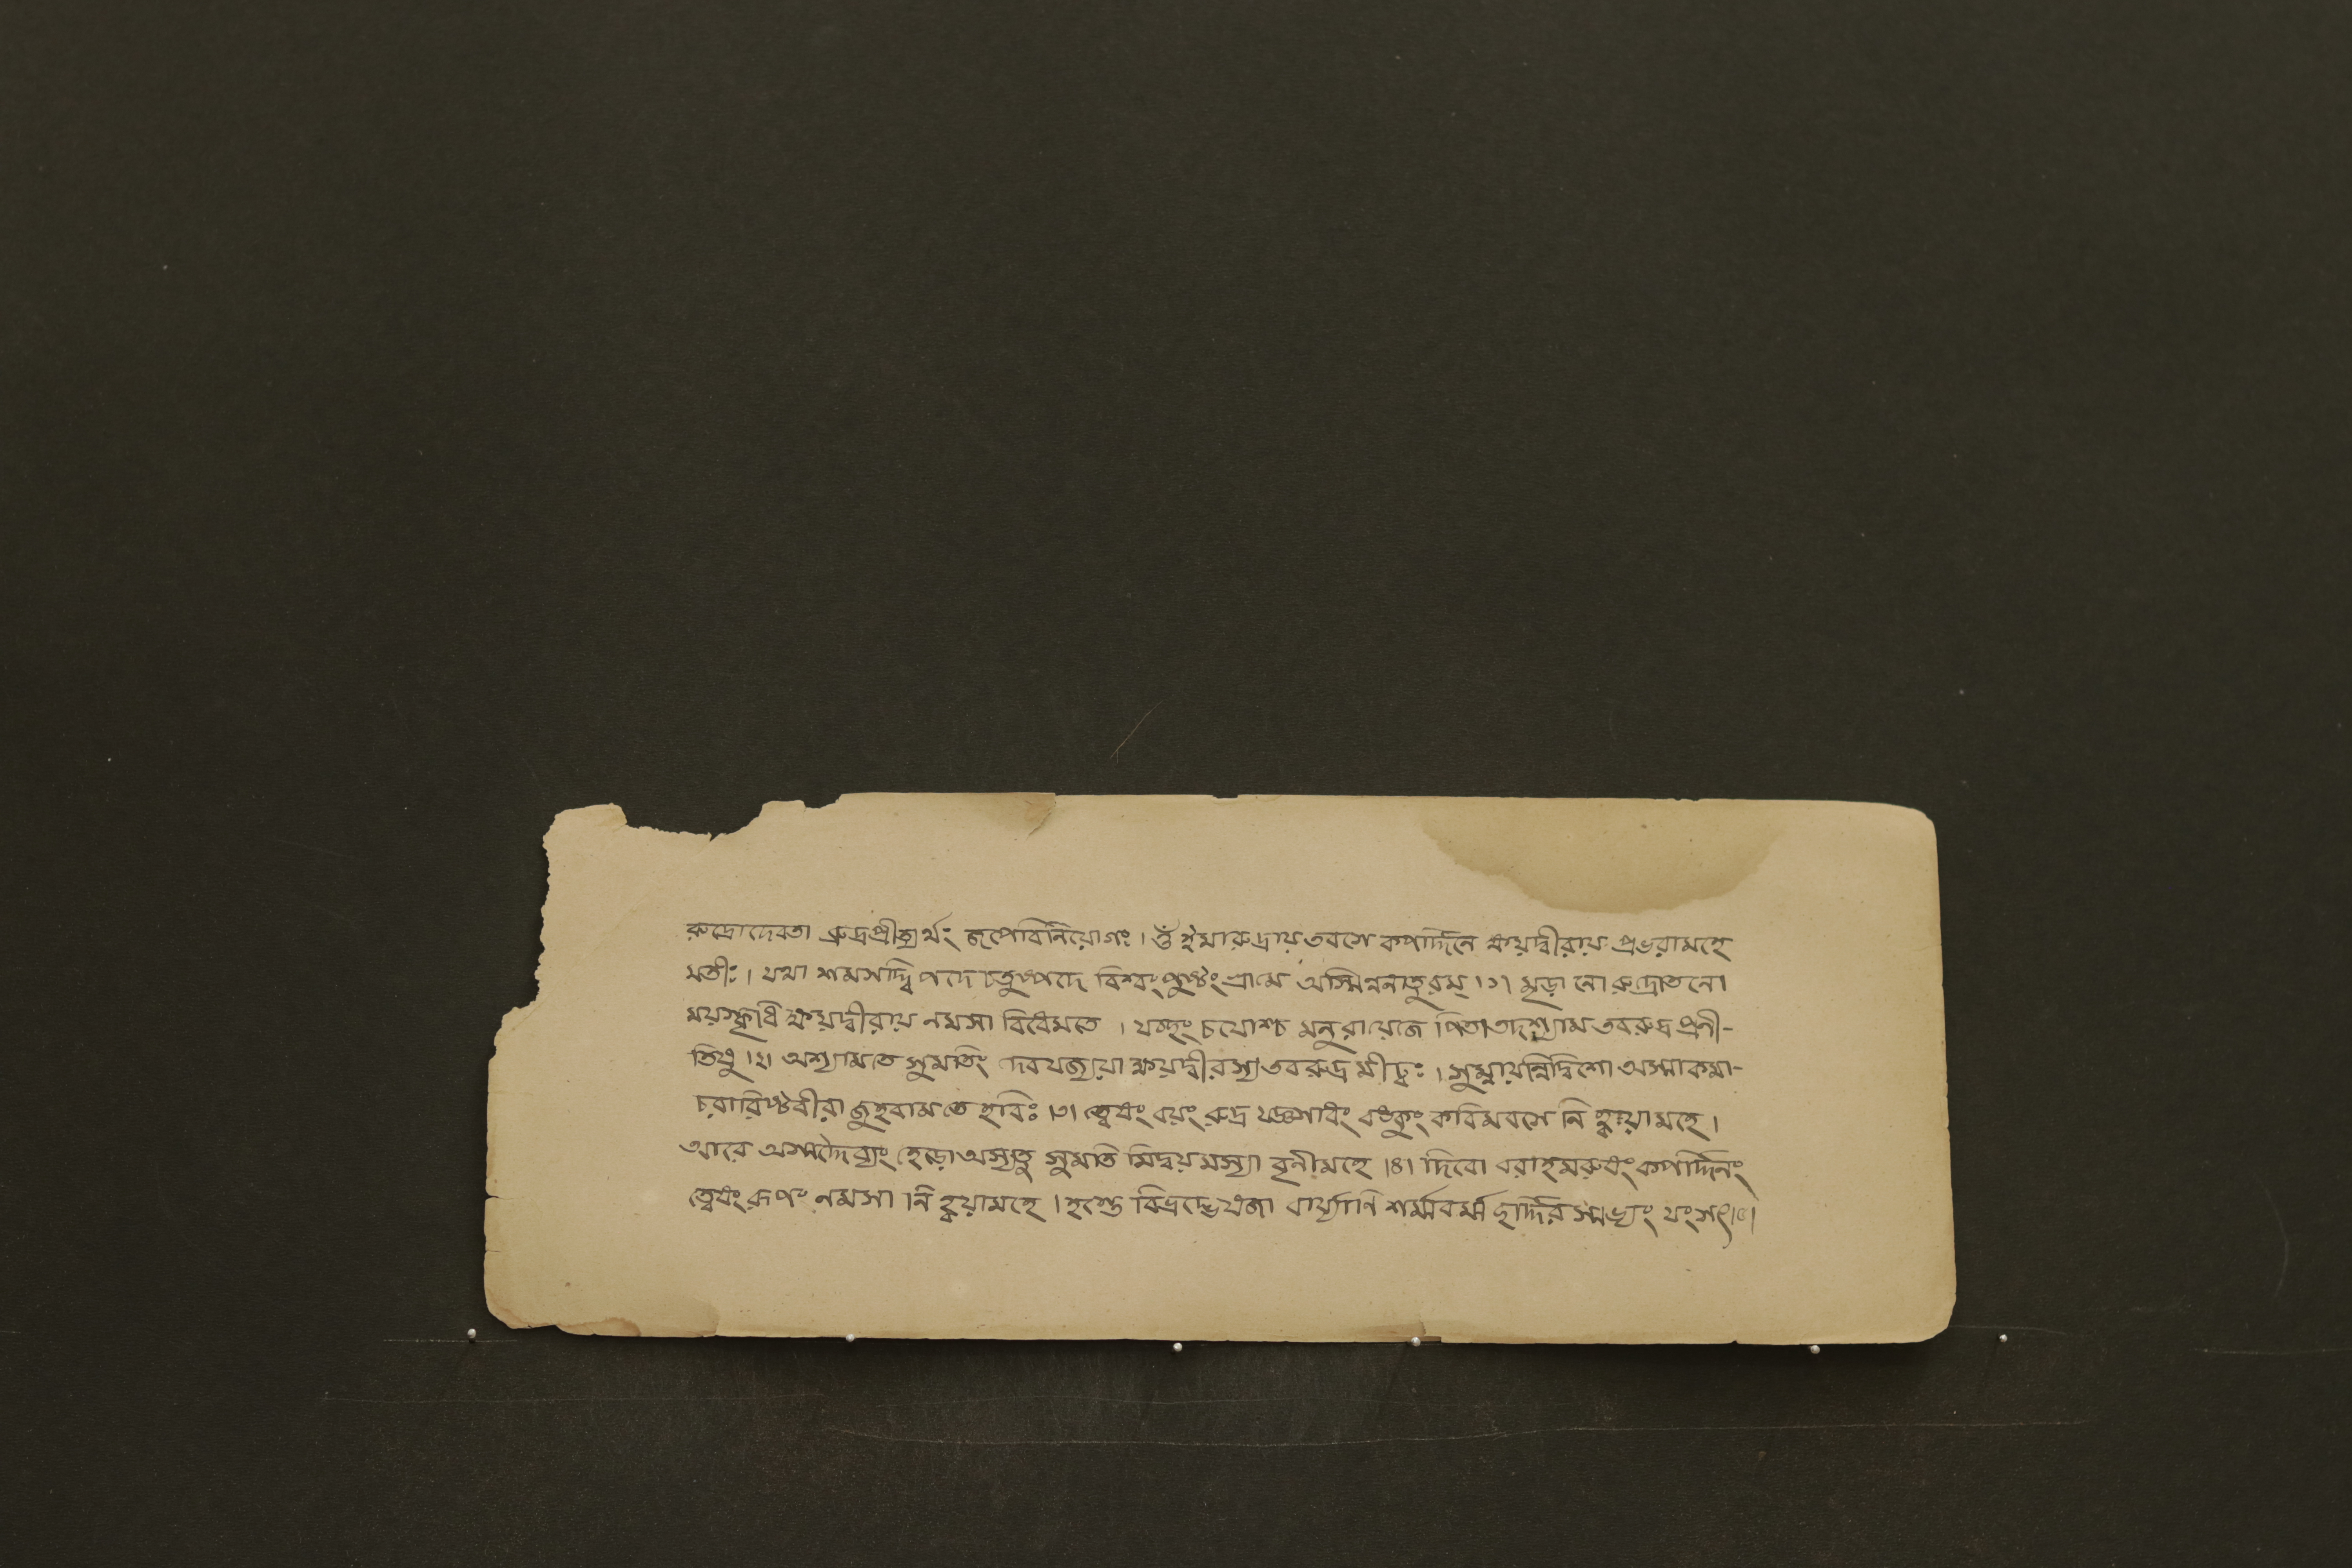 রুদ্রোদেবতা রুদ্রপ্রীত্যর্থং জপেবিনিয়োগঃ। ওঁ ইমারুদ্রায়তবসে কপর্দ্দিনে ক্ষয়দ্বীরায় প্রভরামহে
মতীঃ। যথা শমসদ্দ্বিপদে চতুষ্পদে বিশ্বংপুষ্টংগ্রামে অস্মিন্ননাতুরম্।১। মৃড়া নো রুদ্রোতনো
ময়স্কৃধি ক্ষয়দ্বীরায় নমসা বিধেমতে । যচ্ছং চযোশ্চ মনুরায়েজে পিতাতদশ্যামতবরুদ্র প্রনী-
তিষু।২। অশ্যামতে সুমতিং দেবযজ্যয়া ক্ষয়দ্বীরস্যতবরুদ্র মীঢ্বঃ। সুম্নায়ন্নিদ্বিশো অস্মাকমা-
চরারিষ্টবীরা জুহবামতে হবিঃ।৩। ত্বেষং বয়ং রুদ্র যজ্ঞসাধং বঙ্কুং কবিমবসে নি হ্বয়ামহে।
আরে অস্মদ্দৈব্যং হেড়োঅস্যতু সুমতি মিদ্বয়মস্যা বৃনীমহে।৪। দিবো বরাহমরুষং কপর্দ্দিনং
ত্বেষং রূপং নমসা নি হ্বয়ামহে। হস্তে বিভ্রদ্ভেষজা বার্য্যাণি শর্ম্মবর্ম্ম ছর্দ্দিরস্মভ্যং যংসৎ।৫।